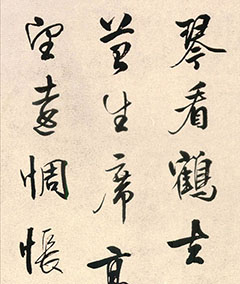 琴看鶴去
苔生席高
望遠惆悵